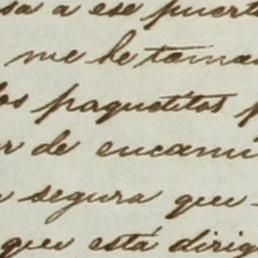 sa a ese puert
me he toma
los paquetitos p
r de encami
segura que-
que está dirig